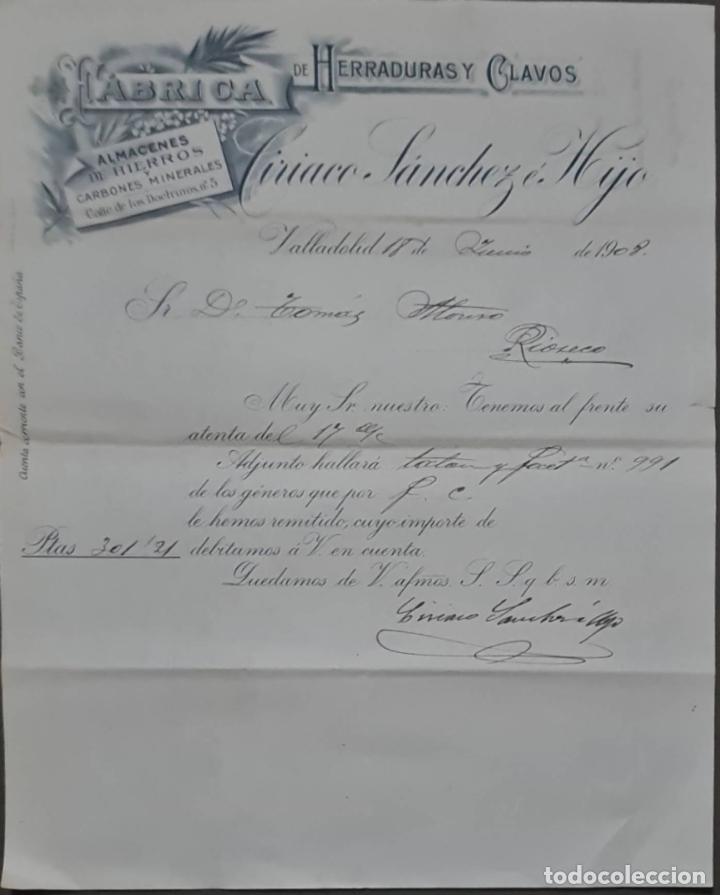 FÁBRICA DE HERRADURAS Y CLAVOS
ALMACENES
DE HIERROS
Y
CARBONES MINERALES
Calle de los Doctrinos, nº 5
Ciriaco Sánchez é Hijo
Valladolid 18 de Junio de 1908.
Sr. Dn. Tomás Alonso
Rioseco
Cuenta corriente en el Banco de España
Muy Sr. nuestro: Tenemos al frente su
atenta del 17 a/c
Adjunto hallará y fact.ª nº 991
de los géneros que por f. c.
le hemos remitido, cuyo importe de
Ptas 301'21 debitamos á V. en cuenta.
Quedamos de V. afmos. S. S. q. b. s. m.
Ciriaco Sanchez é Hijo
todocoleccion